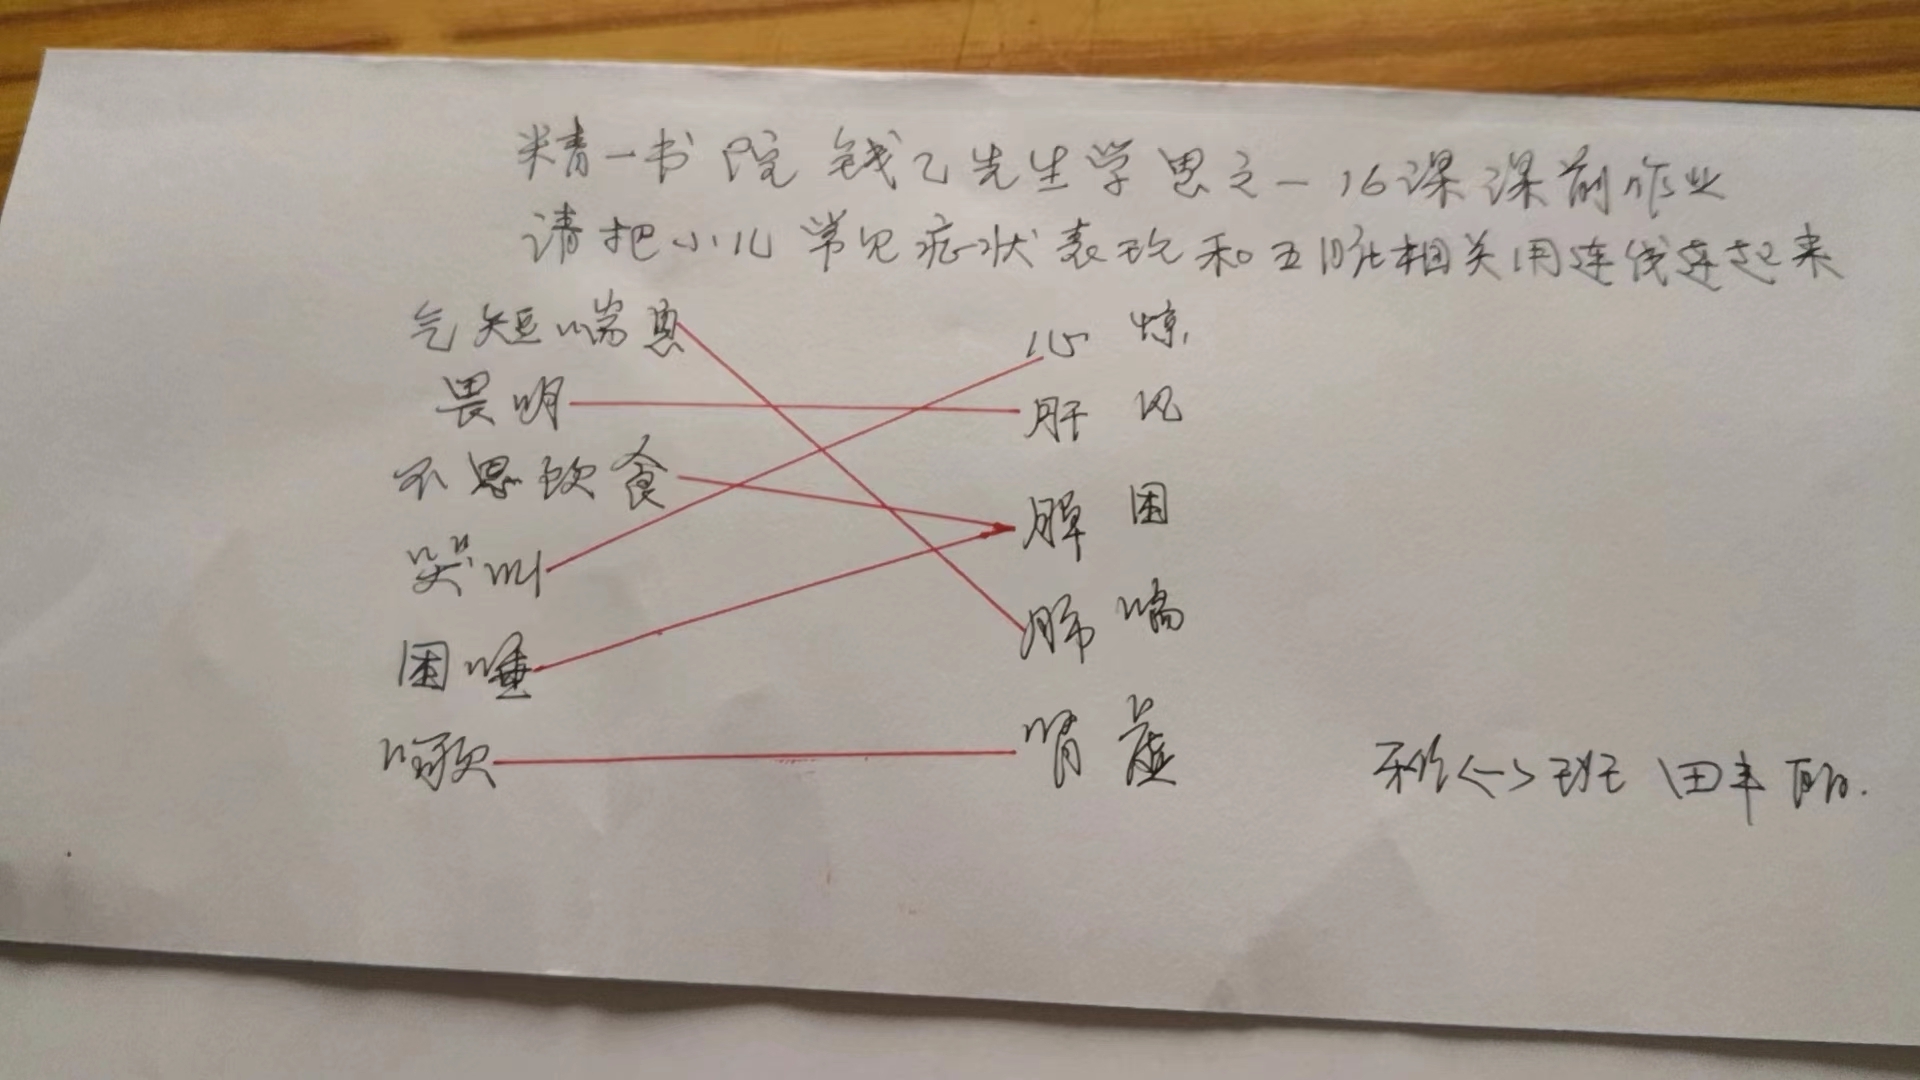 精一书院 钱乙先生学思之一16课课前作业
请把小儿常见症状表现和五脏相关用连线连起来
气短喘息 心 惊
畏明 肝 风
不思饮食 脾 困
哭叫 肺 喘
困睡 肾 虚